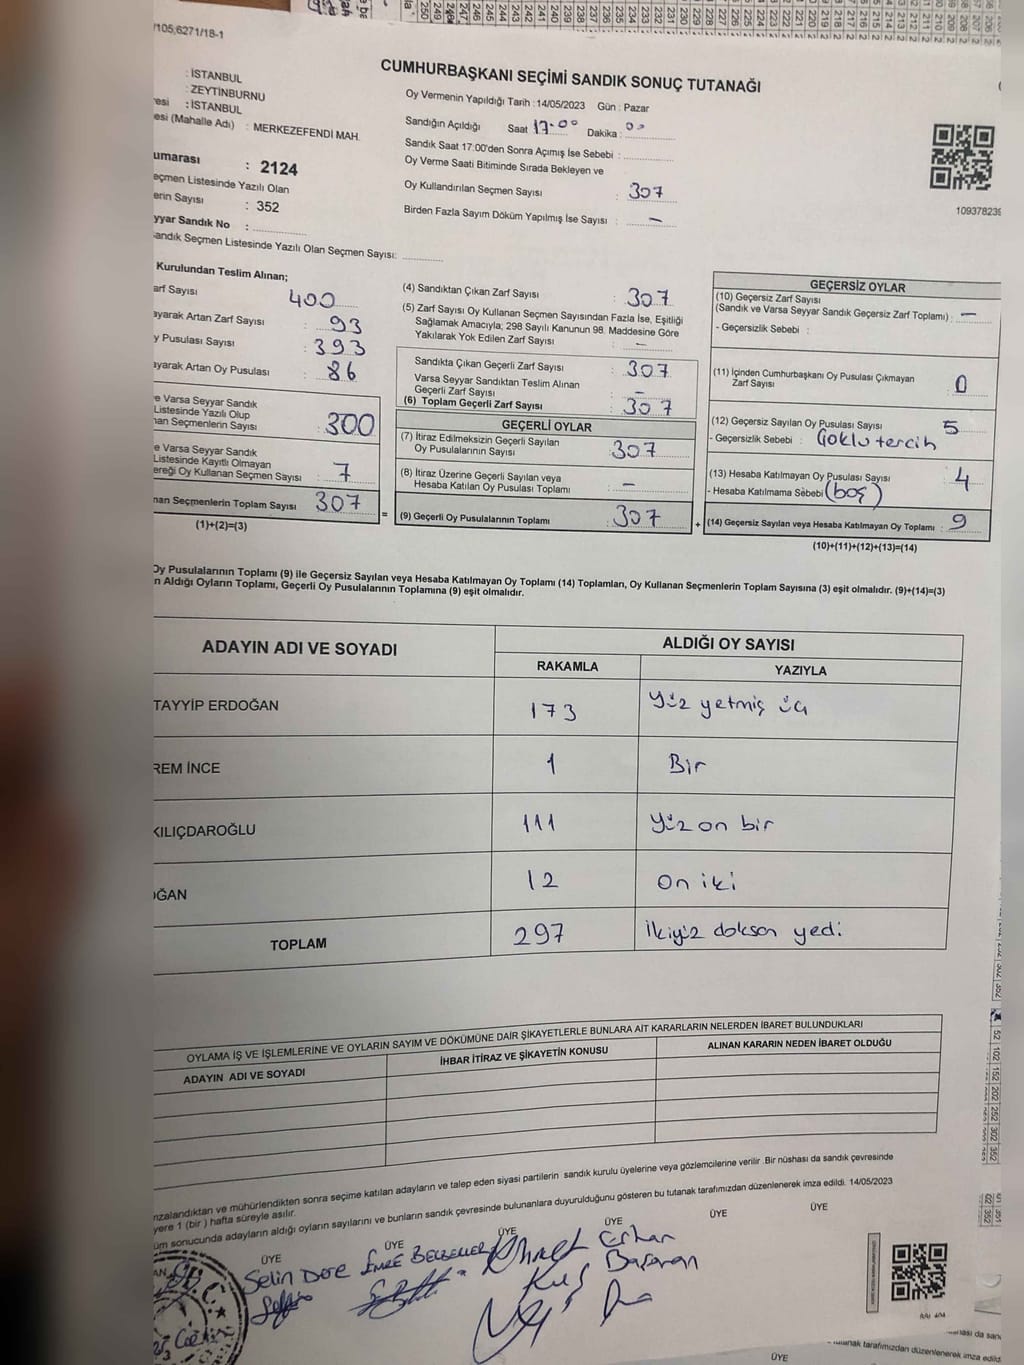 /105,6271/18-1
CUMHURBAŞKANI SEÇİMİ SANDIK SONUÇ TUTANAĞI
: İSTANBUL
: ZEYTİNBURNU
esi : İSTANBUL
esi (Mahalle Adı) : MERKEZEFENDİ MAH.
umarası : 2124
eçmen Listesinde Yazılı Olan
erin Sayısı : 352
yyar Sandık No :
andık Seçmen Listesinde Yazılı Olan Seçmen Sayısı:
Oy Vermenin Yapıldığı Tarih : 14/05/2023 Gün : Pazar
Sandığın Açıldığı Saat 17.00 Dakika : 00
Sandık Saat 17:00'den Sonra Açımış İse Sebebi :
Oy Verme Saati Bitiminde Sırada Bekleyen ve
Oy Kullandırılan Seçmen Sayısı : 307
Birden Fazla Sayım Döküm Yapılmış İse Sayısı : —
109378239
Kurulundan Teslim Alınan;
arf Sayısı 400
ayarak Artan Zarf Sayısı : 93
y Pusulası Sayısı : 393
ayarak Artan Oy Pusulası : 86
e Varsa Seyyar Sandık
Listesinde Yazılı Olup
nan Seçmenlerin Sayısı : 300
e Varsa Seyyar Sandık
Listesinde Kayıtlı Olmayan
ereği Oy Kullanan Seçmen Sayısı : 7
nan Seçmenlerin Toplam Sayısı 307
(1)+(2)=(3)
(4) Sandıktan Çıkan Zarf Sayısı : 307
(5) Zarf Sayısı Oy Kullanan Seçmen Sayısından Fazla İse, Eşitliği
Sağlamak Amacıyla; 298 Sayılı Kanunun 98. Maddesine Göre
Yakılarak Yok Edilen Zarf Sayısı : —
Sandıkta Çıkan Geçerli Zarf Sayısı : 307
Varsa Seyyar Sandıktan Teslim Alınan
Geçerli Zarf Sayısı : —
(6) Toplam Geçerli Zarf Sayısı : 307
GEÇERLİ OYLAR
(7) İtiraz Edilmeksizin Geçerli Sayılan
Oy Pusulalarının Sayısı : 307
(8) İtiraz Üzerine Geçerli Sayılan veya
Hesaba Katılan Oy Pusulası Toplamı : —
= (9) Geçerli Oy Pusulalarının Toplamı : 307 +
GEÇERSİZ OYLAR
(10) Geçersiz Zarf Sayısı
(Sandık ve Varsa Seyyar Sandık Geçersiz Zarf Toplamı) : —
- Geçersizlik Sebebi :
(11) İçinden Cumhurbaşkanı Oy Pusulası Çıkmayan
Zarf Sayısı : 0
(12) Geçersiz Sayılan Oy Pusulası Sayısı : 5
- Geçersizlik Sebebi : Çoklu tercih
(13) Hesaba Katılmayan Oy Pusulası Sayısı : 4
- Hesaba Katılmama Sebebi (boş)
(14) Geçersiz Sayılan veya Hesaba Katılmayan Oy Toplamı : 9
(10)+(11)+(12)+(13)=(14)
Oy Pusulalarının Toplamı (9) ile Geçersiz Sayılan veya Hesaba Katılmayan Oy Toplamı (14) Toplamları, Oy Kullanan Seçmenlerin Toplam Sayısına (3) eşit olmalıdır. (9)+(14)=(3)
n Aldığı Oyların Toplamı, Geçerli Oy Pusulalarının Toplamına (9) eşit olmalıdır.
ADAYIN ADI VE SOYADI ALDIĞI OY SAYISI
RAKAMLA YAZIYLA
TAYYİP ERDOĞAN 173 Yüz yetmiş üç
REM İNCE 1 Bir
KILIÇDAROĞLU 111 Yüz on bir
OĞAN 12 On iki
TOPLAM 297 İkiyüz doksan yedi
OYLAMA İŞ VE İŞLEMLERİNE VE OYLARIN SAYIM VE DÖKÜMÜNE DAİR ŞİKAYETLERLE BUNLARA AİT KARARLARIN NELERDEN İBARET BULUNDUKLARI
ADAYIN ADI VE SOYADI İHBAR İTİRAZ VE ŞİKAYETİN KONUSU ALINAN KARARIN NEDEN İBARET OLDUĞU
nzalandıktan ve mühürlendikten sonra seçime katılan adayların ve talep eden siyasi partilerin sandık kurulu üyelerine veya gözlemcilerine verilir .Bir nüshası da sandık çevresinde
yere 1 (bir ) hafta süreyle asılır.
üm sonucunda adayların aldığı oyların sayılarını ve bunların sandık çevresinde bulunanlara duyurulduğunu gösteren bu tutanak tarafımızdan düzenlenerek imza edildi. 14/05/2023
ÜYE ÜYE ÜYE ÜYE ÜYE ÜYE
Selin Dere
Ahmet
Kuş
Erhan
Başaran
tutanak tarafımızdan düzenlenerek imza edild
ÜYE